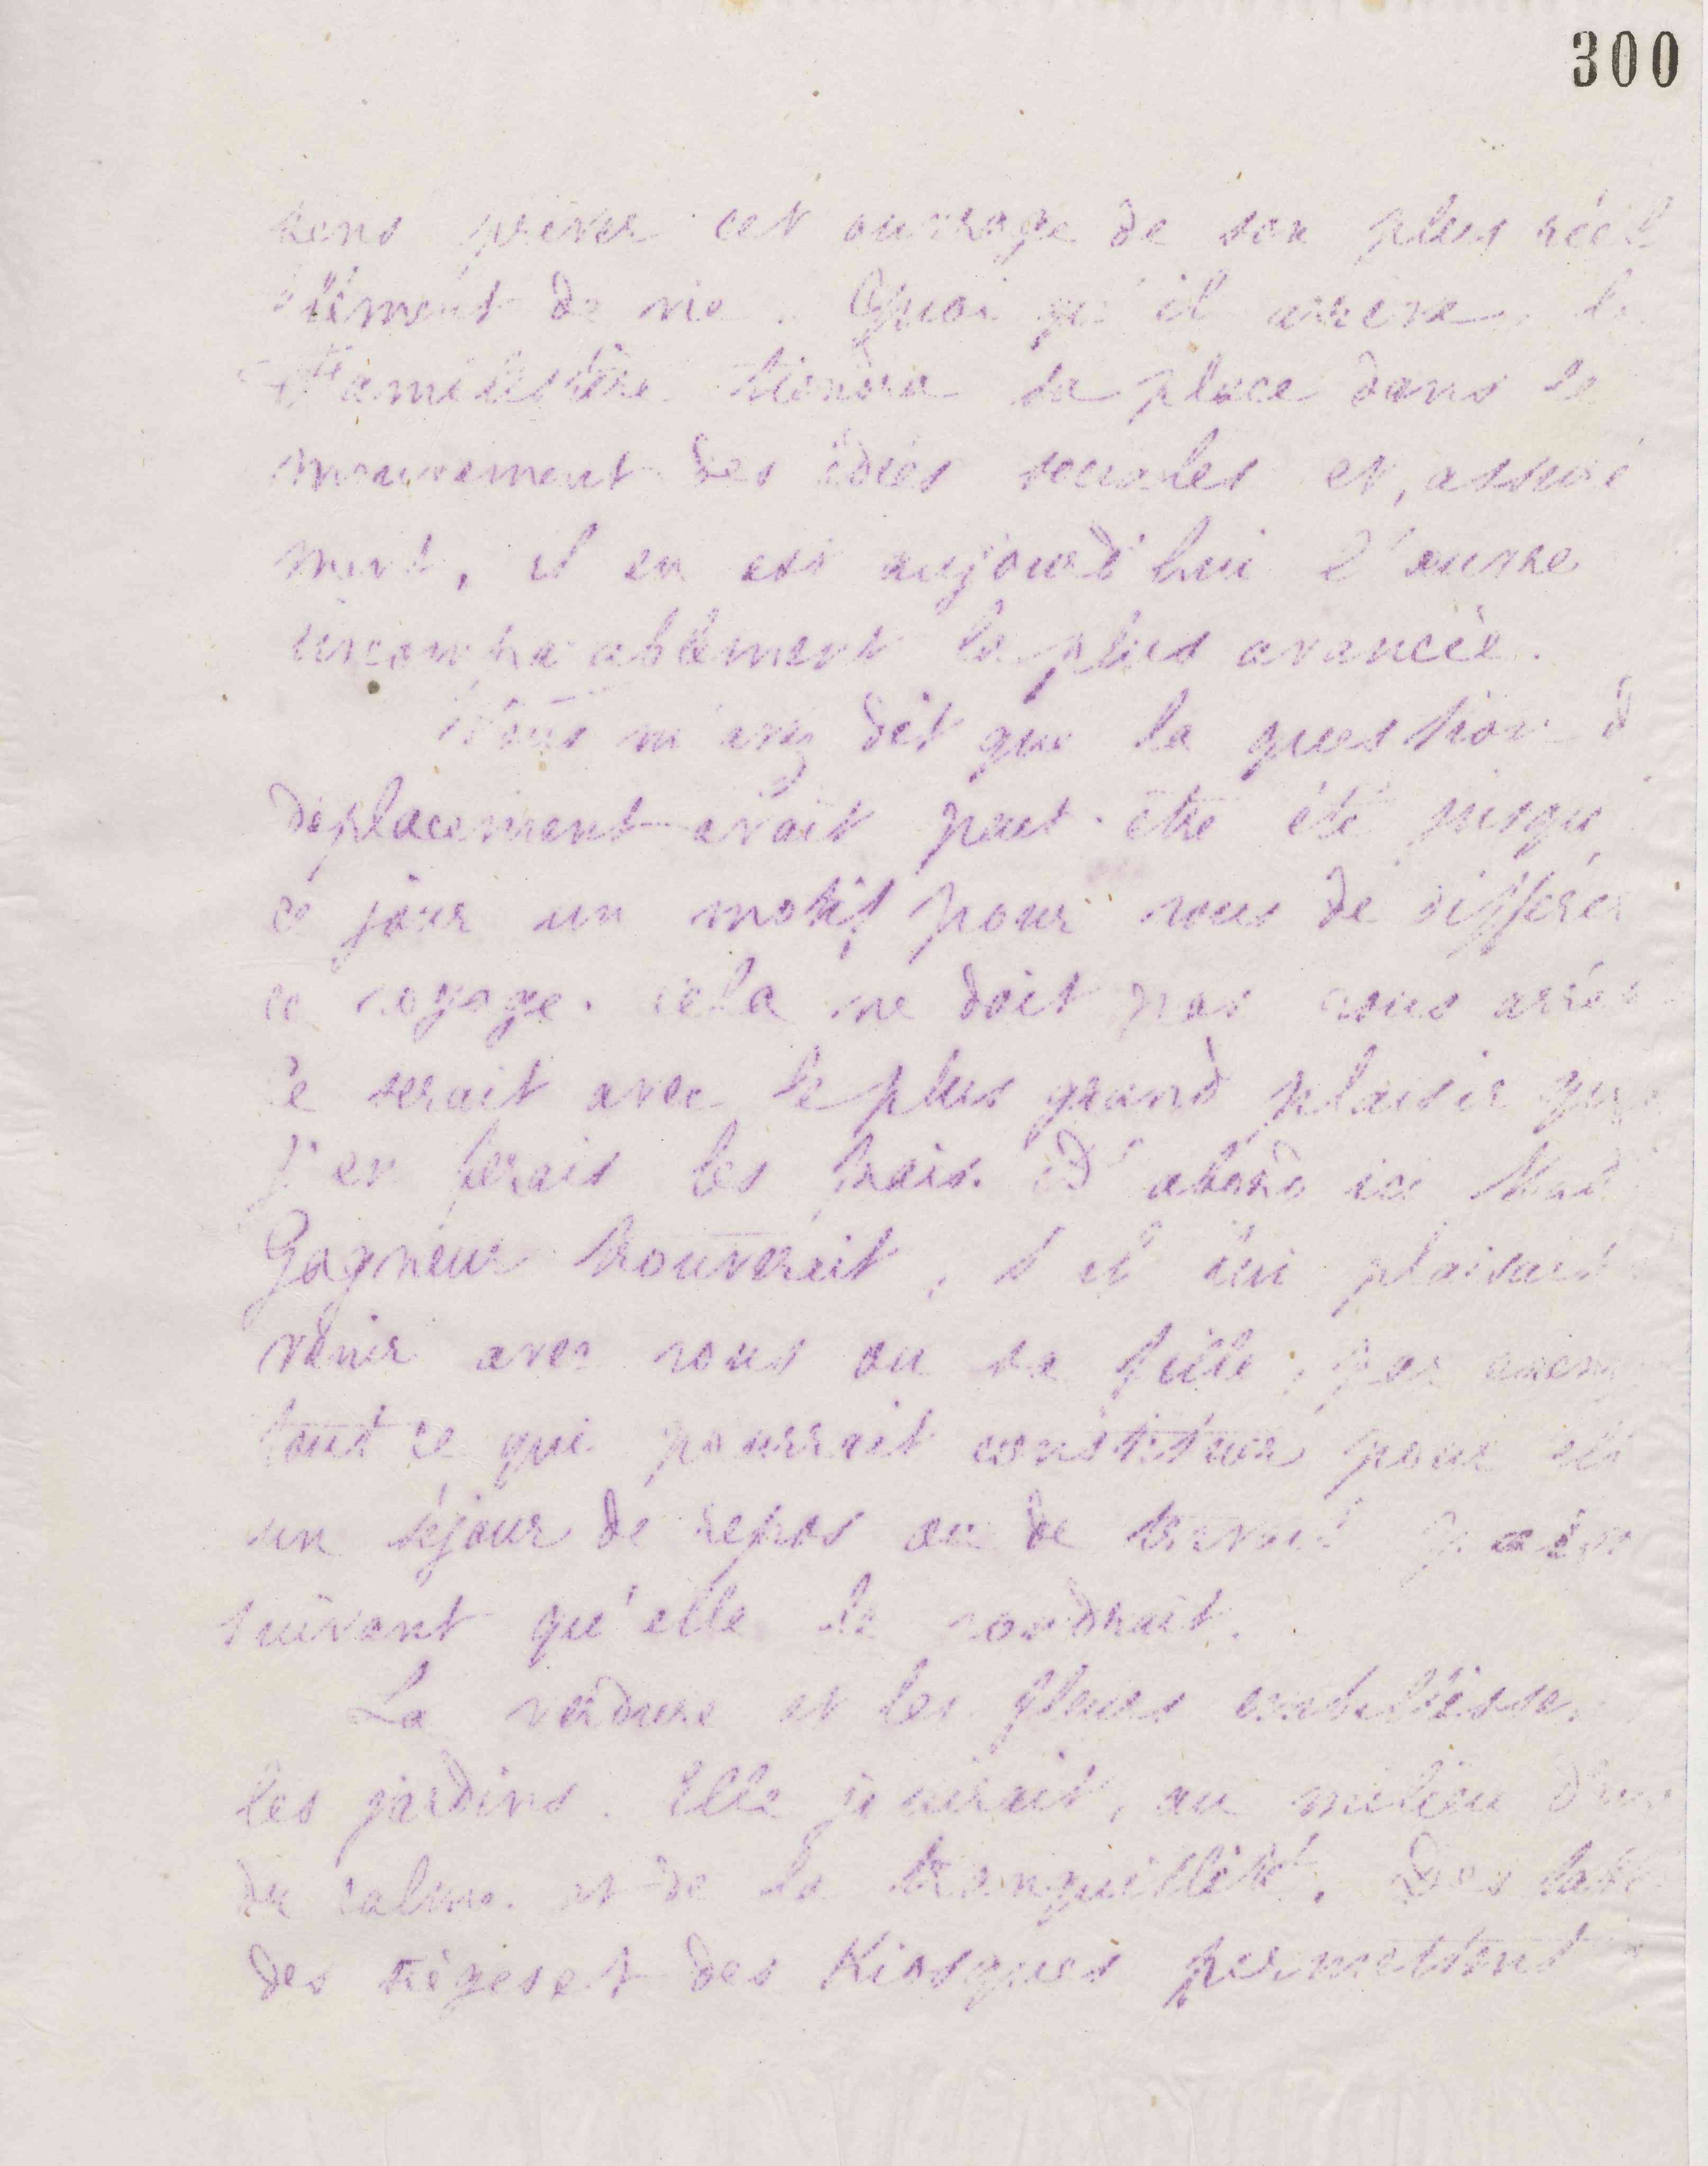 300
sens priver cet ouvrage de son plus réel
élément de vie. Quoi qu'il arrive, le
Familistère tiendra sa place dans le
mouvement des idées sociales et, assuré
ment, il en est aujourd'hui l'œuvre
incomparablement la plus avancée.
Vous m'avez dit que la question d
déplacement avait peut-être été jusqu'
ce jour un motif pour vous de différer
ce voyage. cela ne doit pas vous arrê
Ce serait avec le plus grand plaisir que
j'en ferais les frais. D'abord ici Mad
Gagneur trouverait, s'il lui plaisait
venir avec vous ou sa fille,
tout ce qui pourrait constituer pour elle
un séjour de repos ou de travail
suivant qu'elle le voudrait.
La verdure et les fleurs embellisse
les jardins. Elle jouirait, au milieu d'eux
du calme et de la tranquillité. Des
des sièges et des Kiosques permettent